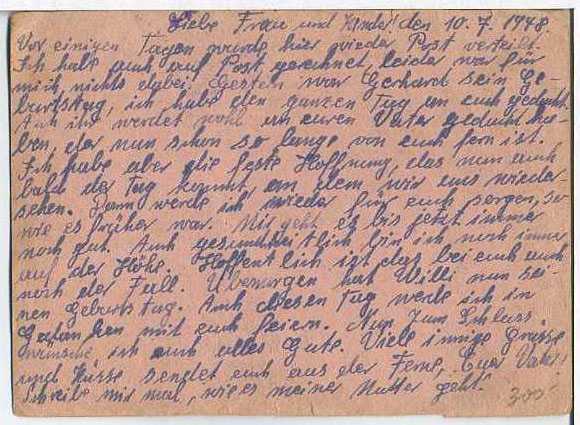 Liebe Frau und Kinder! den 10.7.1948.
Vor einigen Tagen wurde hier wieder Post verteilt.
Ich habe auch auf Post gerechnet, leider war für
mich nichts dabei. Gestern war Gerhard sein Ge-
burtstag, ich habe den ganzen Tag an euch gedacht.
Auch ihr werdet wohl an euren Vater gedacht ha-
ben, der nun schon so lange von euch fern ist.
Ich habe aber die feste Hoffnung, das nun auch
bald der Tag kommt, an dem wir uns wieder
sehen. Dann werde ich wieder für euch sorgen, so
wie es früher war. Mir geht es bis jetzt immer
noch gut. Auch gesundheitlich bin ich noch immer
auf der Höhe. Hoffentlich ist das bei euch auch
noch der Fall. Übermorgen hat Willi nun sei-
nen Geburtstag. Auch diesen Tag werde ich in
Gedanken mit euch feiern. Nun zum Schluss
wünsche ich euch alles Gute. Viele innige Grüsse
und Küsse sendet euch aus der Ferne, Euer Vater!
Schreibe mir mal, wie es meiner Mutter geht.
300,-